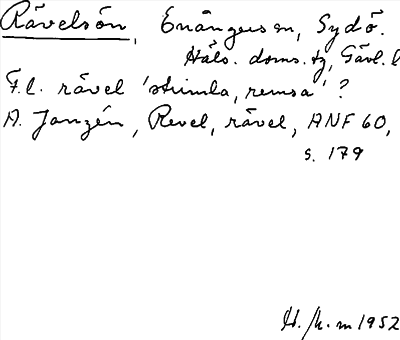 Råvelsön, Enångers sn, Sydö.
Häls. doms.tg, Gävl. l
F.l. råvel 'strimla, remsa'?
A. Janzén, Revel, råvel, ANF 60,
s. 179
H. /k. m 1952